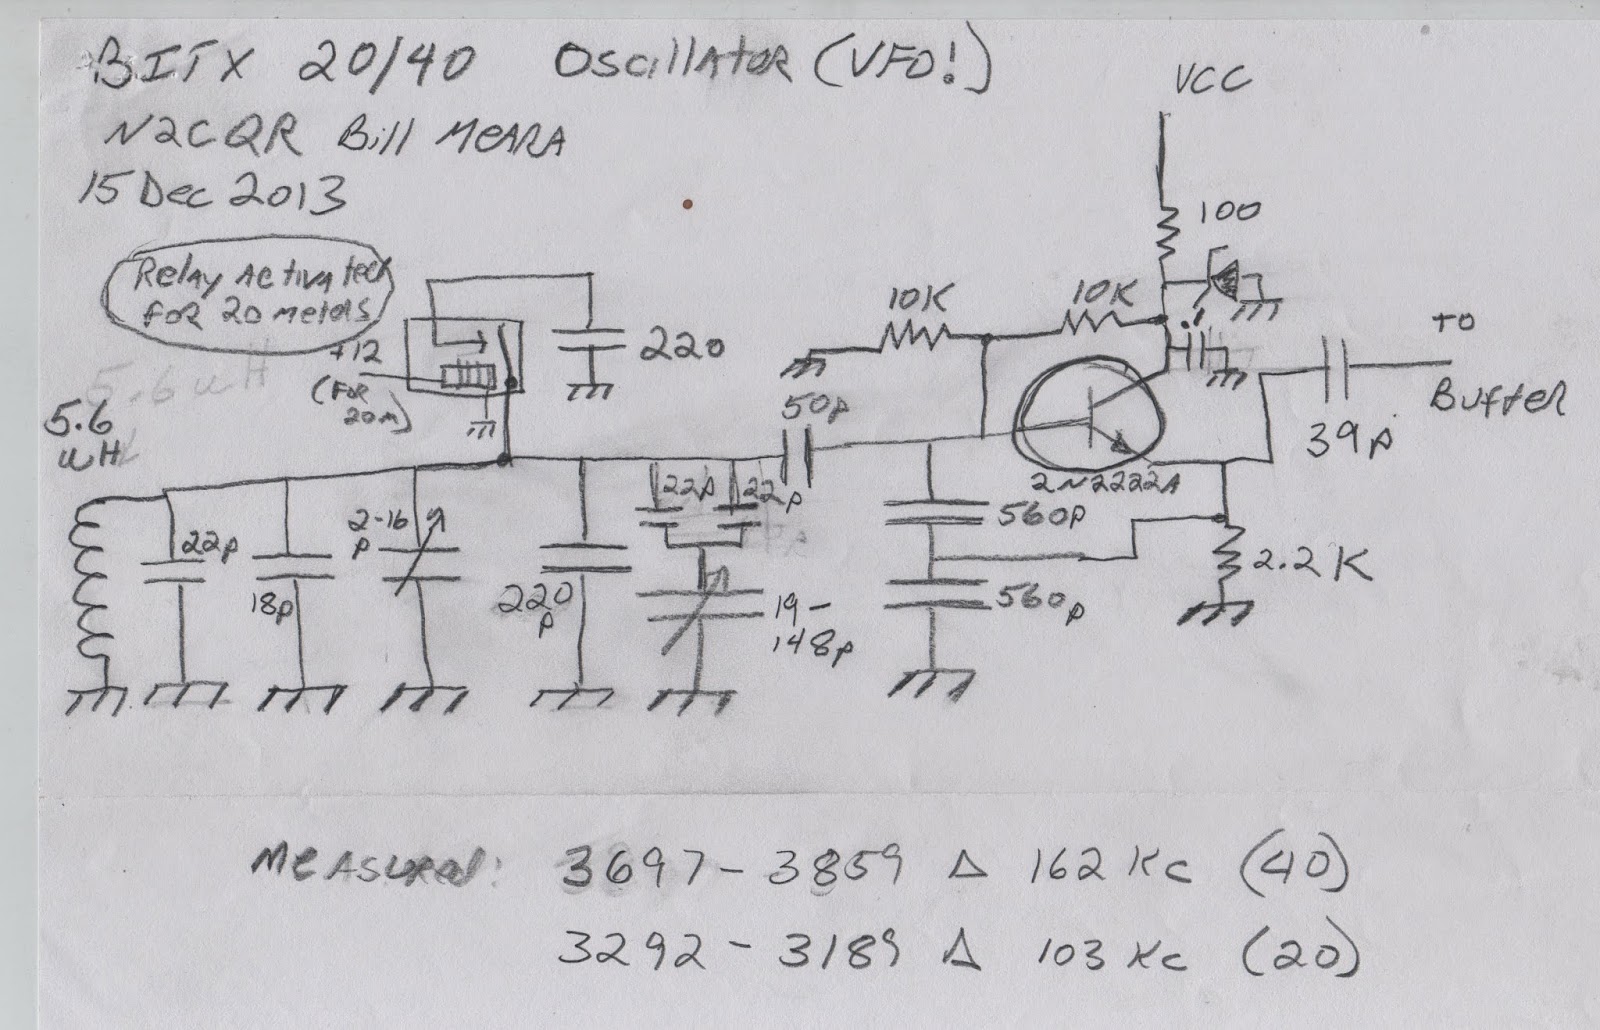 BITX 20/40 Oscillator (VFO!)
N2CQR Bill MEARA
15 Dec 2013
VCC
100
Relay Activated
for 20 meters
+12
(for
20m)
220
10K
10K
.1
to
Buffer
39p
5.6uH
5.6
uH
50p
2N2222A
22p
18p
2-16
p
220
p
22p
22p
19-
148p
560p
560p
2.2K
Measured: 3697-3859 Δ 162 Kc (40)
3292-3189 Δ 103 Kc (20)